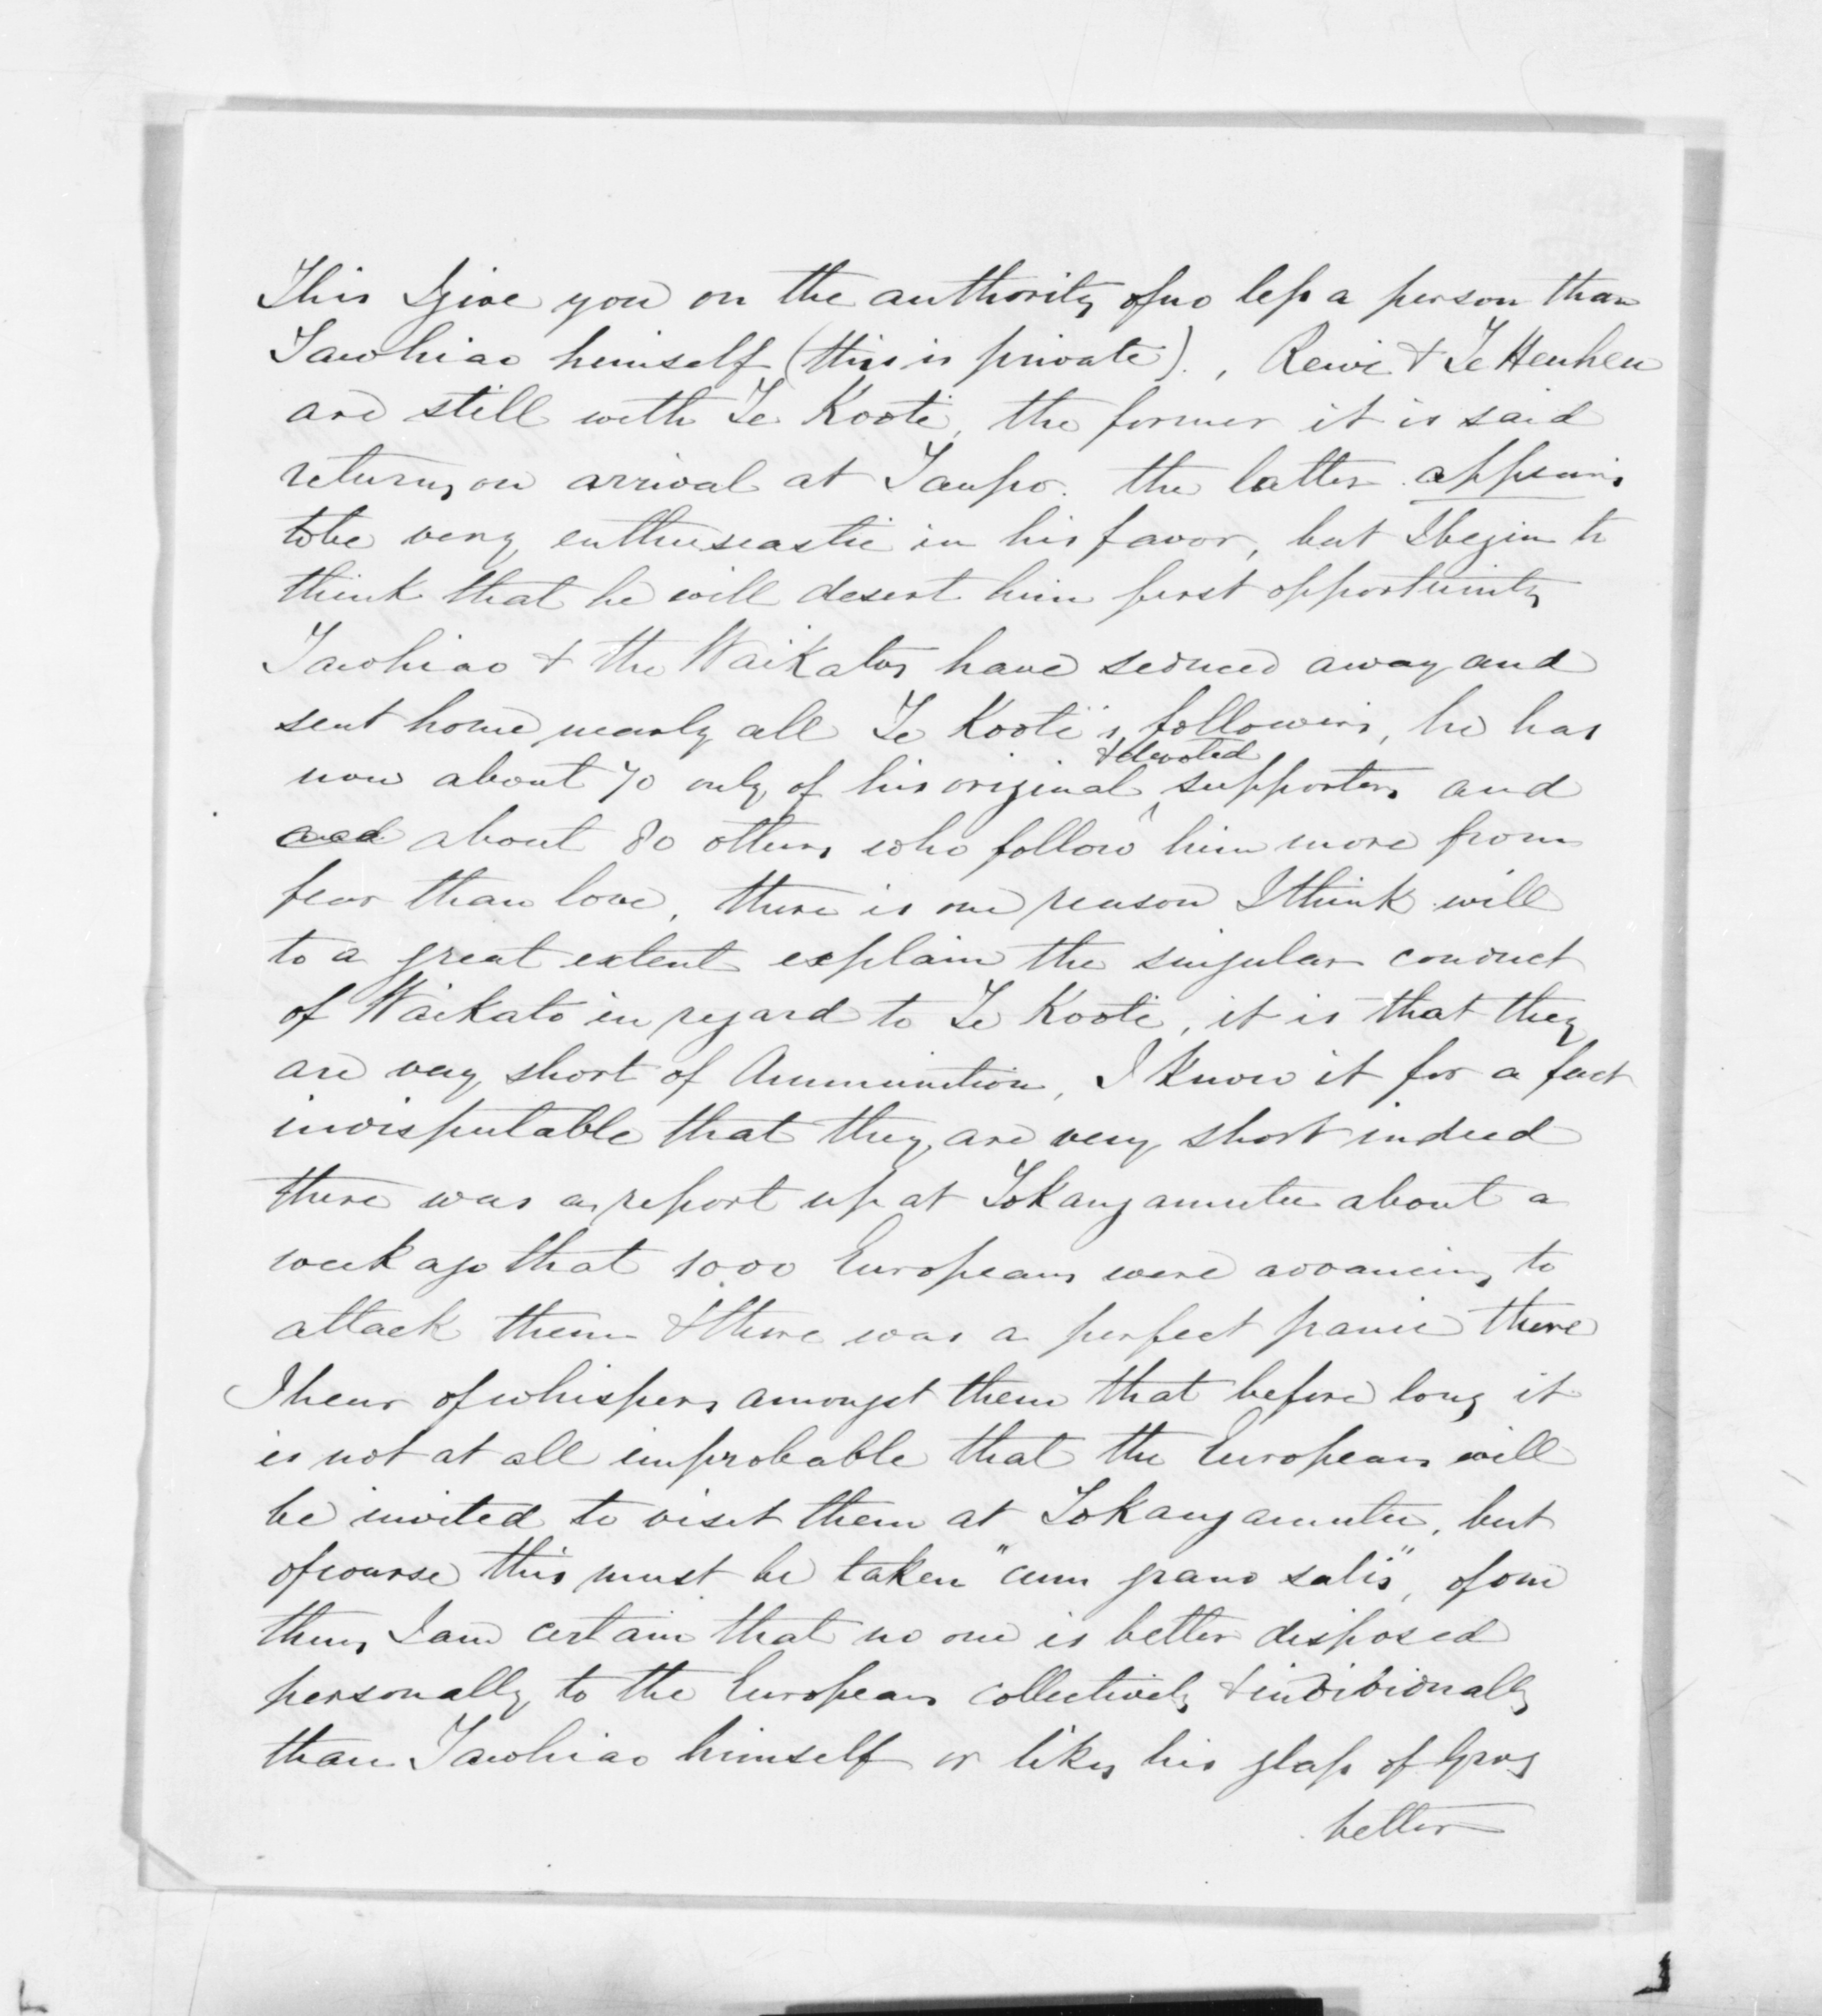 This I give you on the authority of no less a person than
Tawhiao himself (this is private)., Rewi & Te Heuheu
are still with Te Kooti, the former it is said
returns on arrival at Taupo. the latter appears
to be very enthuseastic in his favor, but I begin to
think that he will desert him first opportunity
Tawhiao & the Waikatos have seduced away and
sent home nearly all Te Kooti's followers, he has
& devoted
now about 70 only of his original ^ supporters and
and about 80 others who follow him more from
fear than love, there is one reason I think will
to a great extent explain the singular conduct
of Waikato in regard to Te Kooti, it is that they
are very short of Ammunition, I know it for a fact
indisputable that they are very short indeed
there was a report up at Tokangamutu about a
week ago that 1000 Europeans were advancing to
attack them & there was a perfect panic there
I hear of whispers amongst them that before long it
is not at all improbable that the Europeans will
be invited to visit them at Tokangamutu, but
of course this must be taken "cum grano salis", of one
thing I am certain that no one is better disposed
personally to the Europeans collectively & individually
than Tawhiao himself or likes his glass of Grog
better